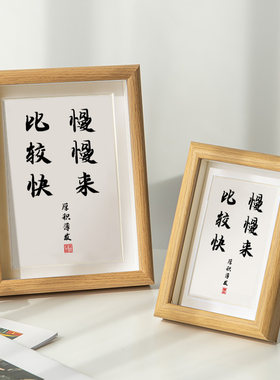 慢慢来
比较快
厚积薄发
慢慢来
比较快
厚积薄发